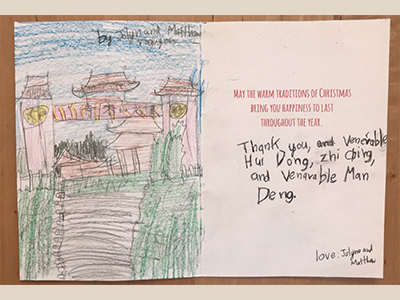 by Jolyn and Matthew
MAY THE WARM TRADITIONS OF CHRISTMAS
BRING YOU HAPPINESS TO LAST
THROUGHOUT THE YEAR.
Thank you, and Venerable
Hui Dong, zhi Qing,
and Venarable Man
Deng.
love, Jolyn and
Matthew